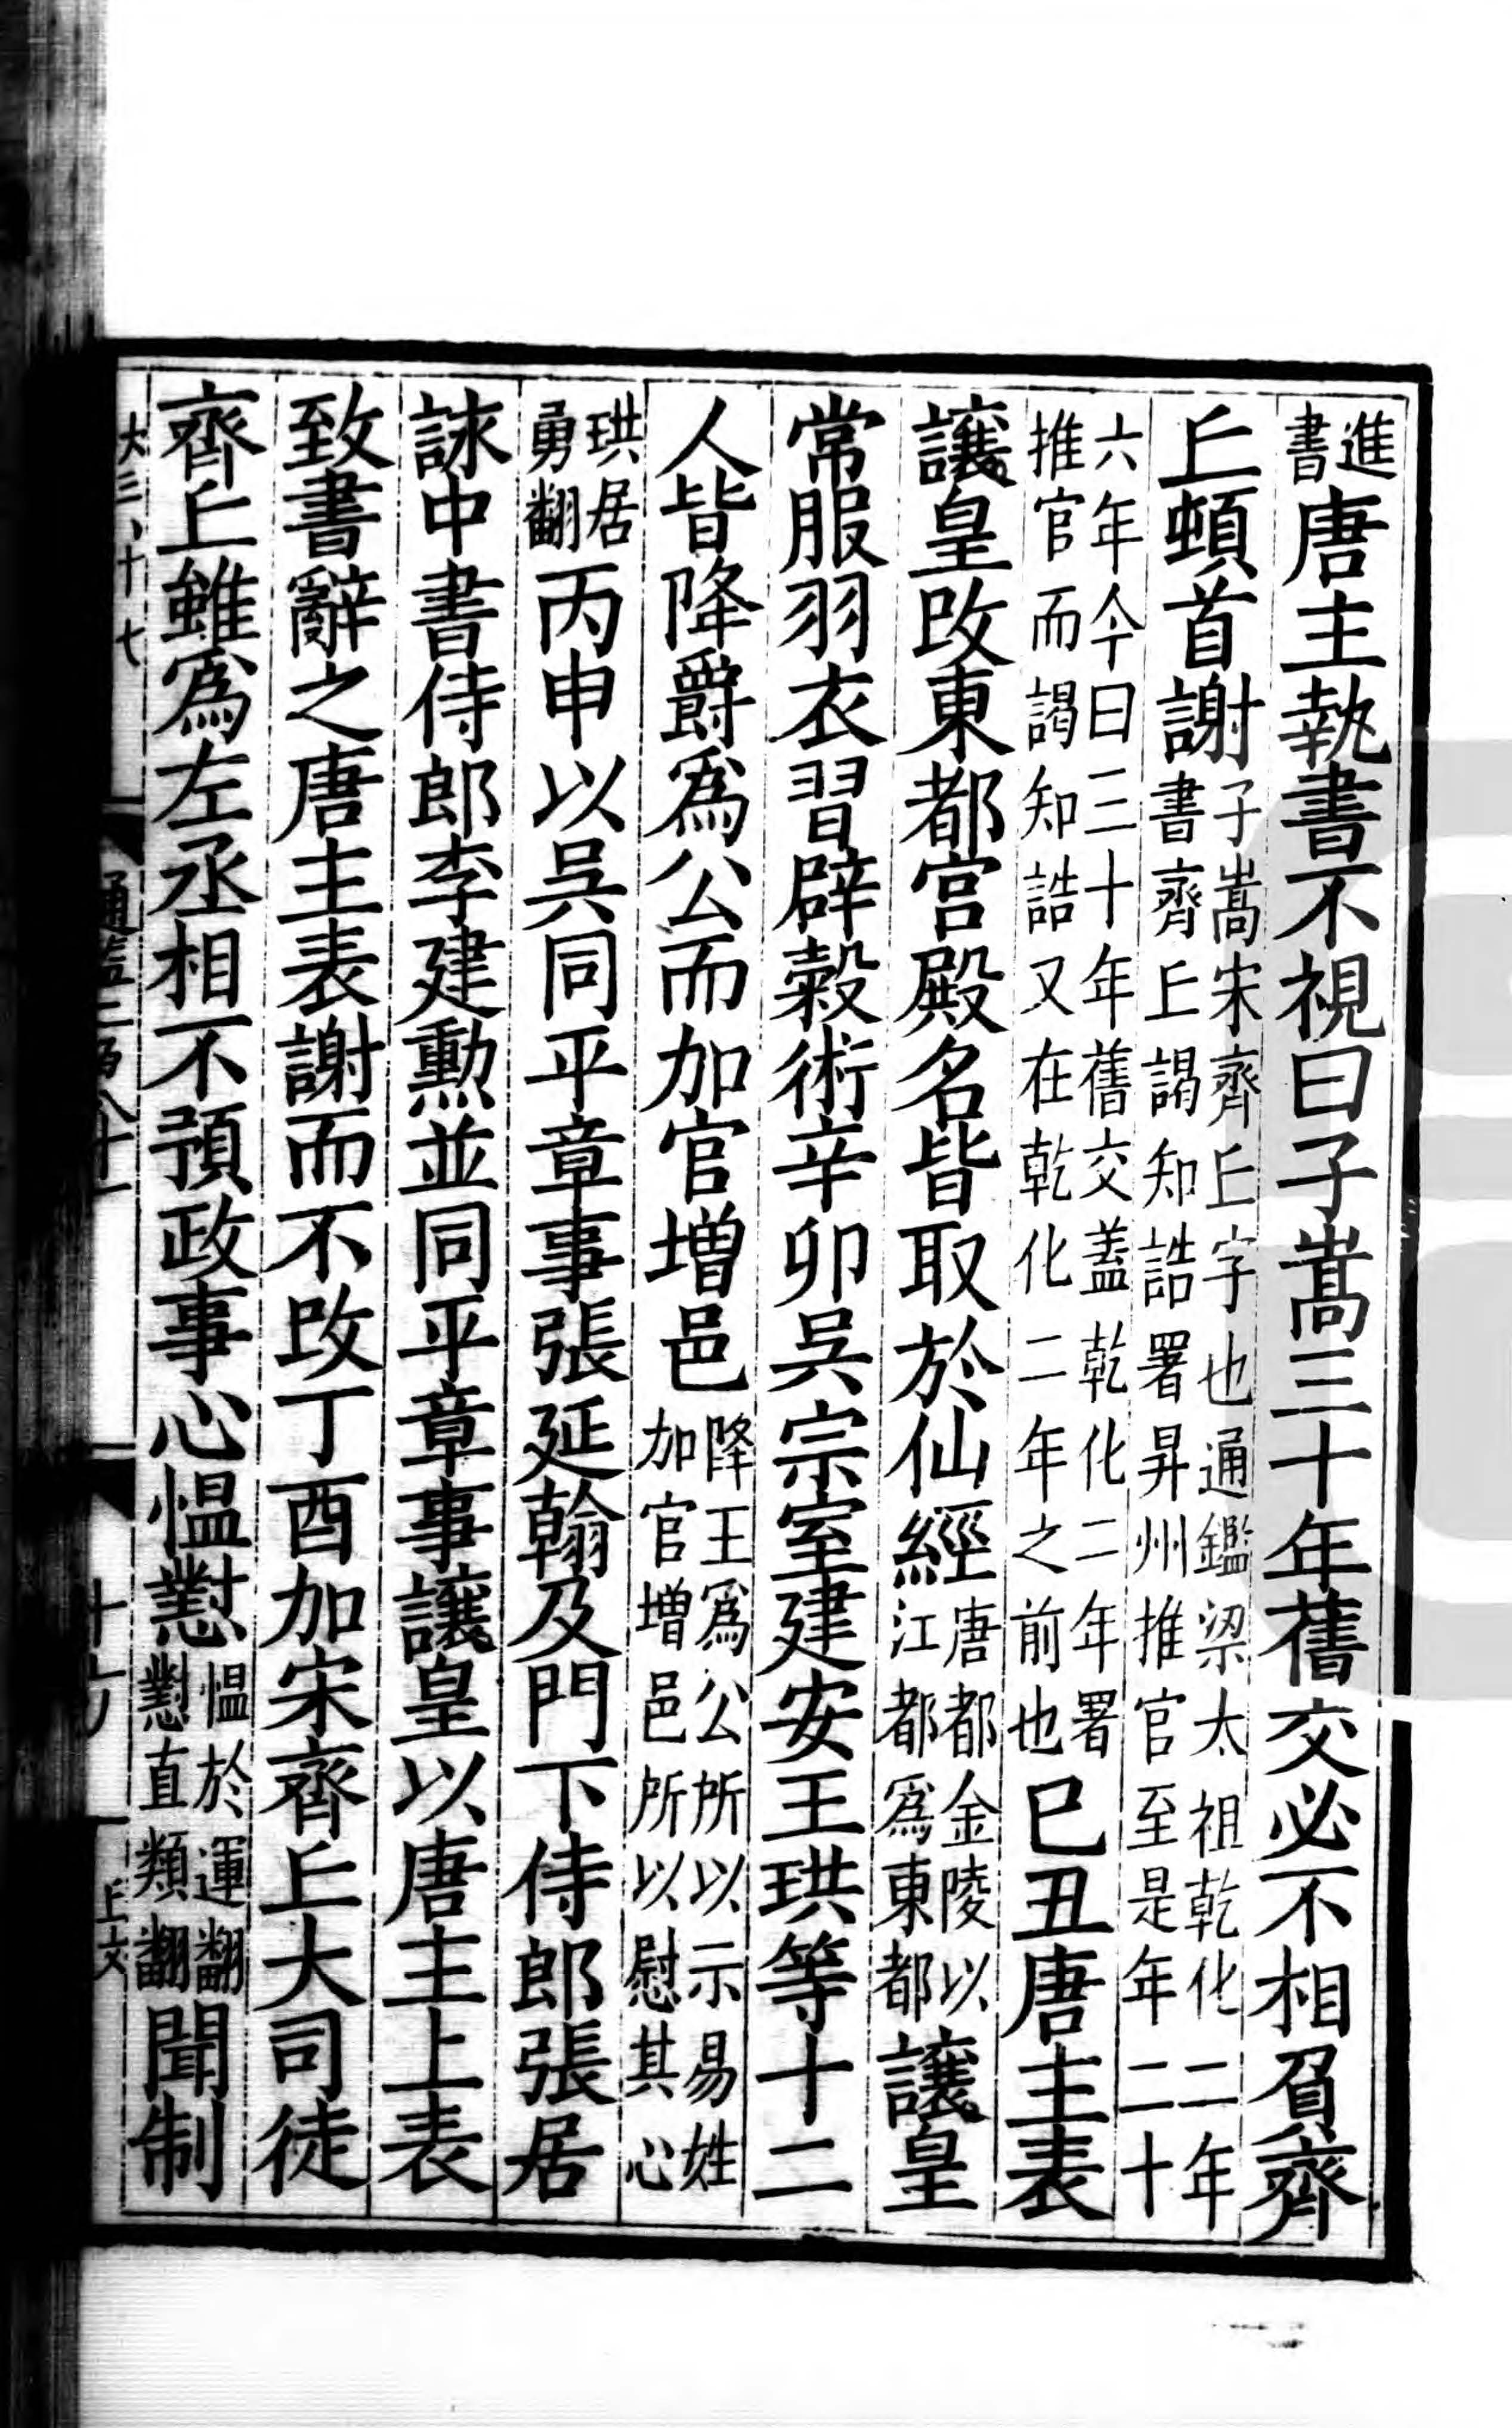 進書唐主執書不視曰子嵩三十年舊交必不相負齊
丘頓首謝子嵩宋齊丘字也通鑑梁太祖乾化二年書齊丘謁知誥署昇州推官至是年二十
六年今曰三十年舊交蓋乾化二年署推官而謁知誥又在乾化二年之前也己丑唐主表
讓皇改東都宫殿名皆取於仙經唐都金陵以江都爲東都讓皇
常服羽衣習辟穀術辛卯吳宗室建安王珙等十二
人皆降爵爲公而加官增邑降王爲公所以示易姓加官增邑所以慰其心
珙居勇翻丙申以吳同平章事張延翰及門下侍郎張居
詠中書侍郎李建勳並同平章事讓皇以唐主上表
致書辭之唐主表謝而不改丁酉加宋齊丘大司徒
齊丘雖爲左丞相不預政事心慍懟慍於運翻懟直類翻聞制
大三、十七